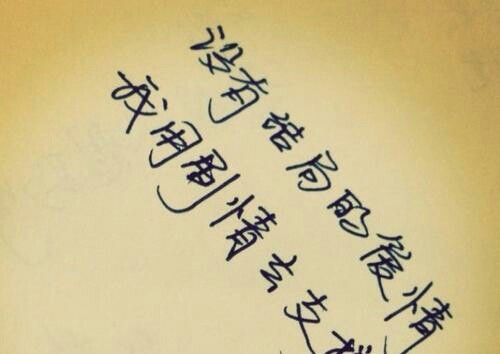 没有结局的爱情
我用剧情去支